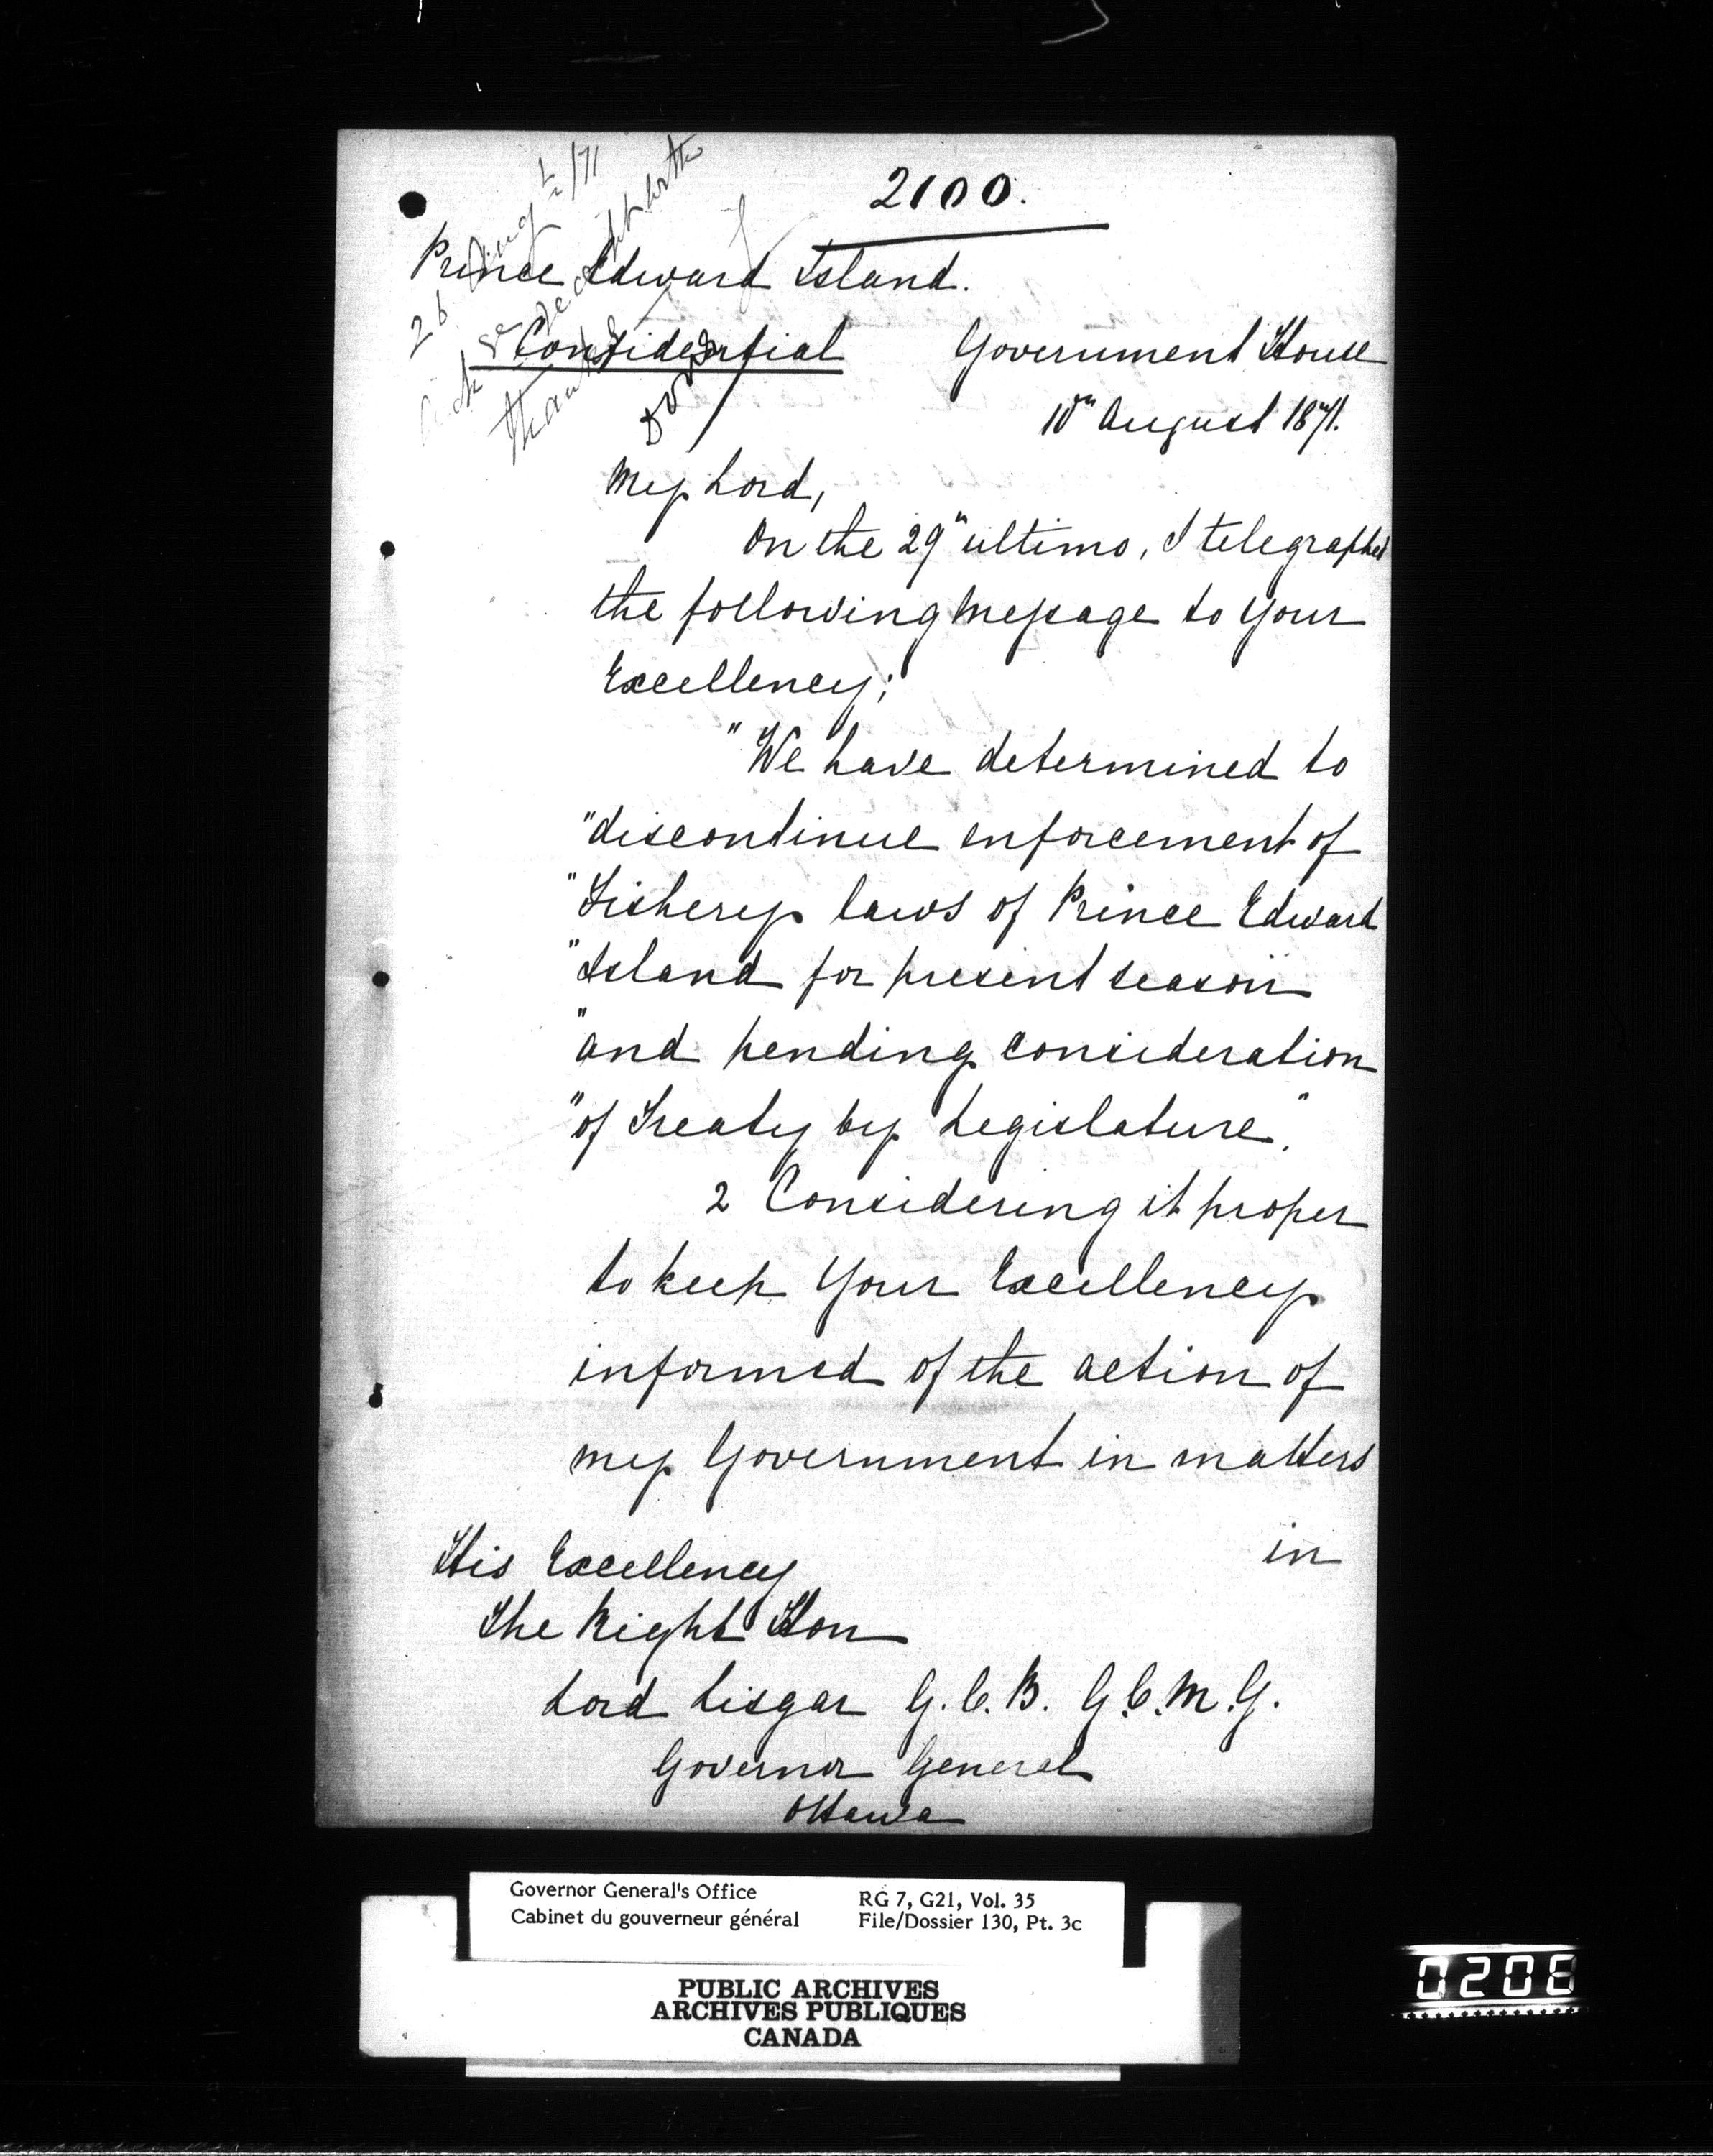 2100.
26 Aug /71
Prince Edward Island.
Confidential Government House
10th August 1871.
My Lord,
On the 29th ultimo, I telegraphed
the following message to Your
Excellency;
"We have determined to
"discontinue enforcement of
"Fishery laws of Prince Edward
"Island for present season
"and pending consideration
"of Treaty by Legislature."
2 Considering it proper
to keep Your Excellency
informed of the action of
my Government in matters
in
His Excellency
The Right Hon
Lord Lisgar G.C.B. G.C.M.G.
Governor General
Ottawa
Governor General's Office
Cabinet du gouverneur général
RG 7, G21, Vol. 35
File/Dossier 130, Pt. 3c
PUBLIC ARCHIVES
ARCHIVES PUBLIQUES
CANADA
0208